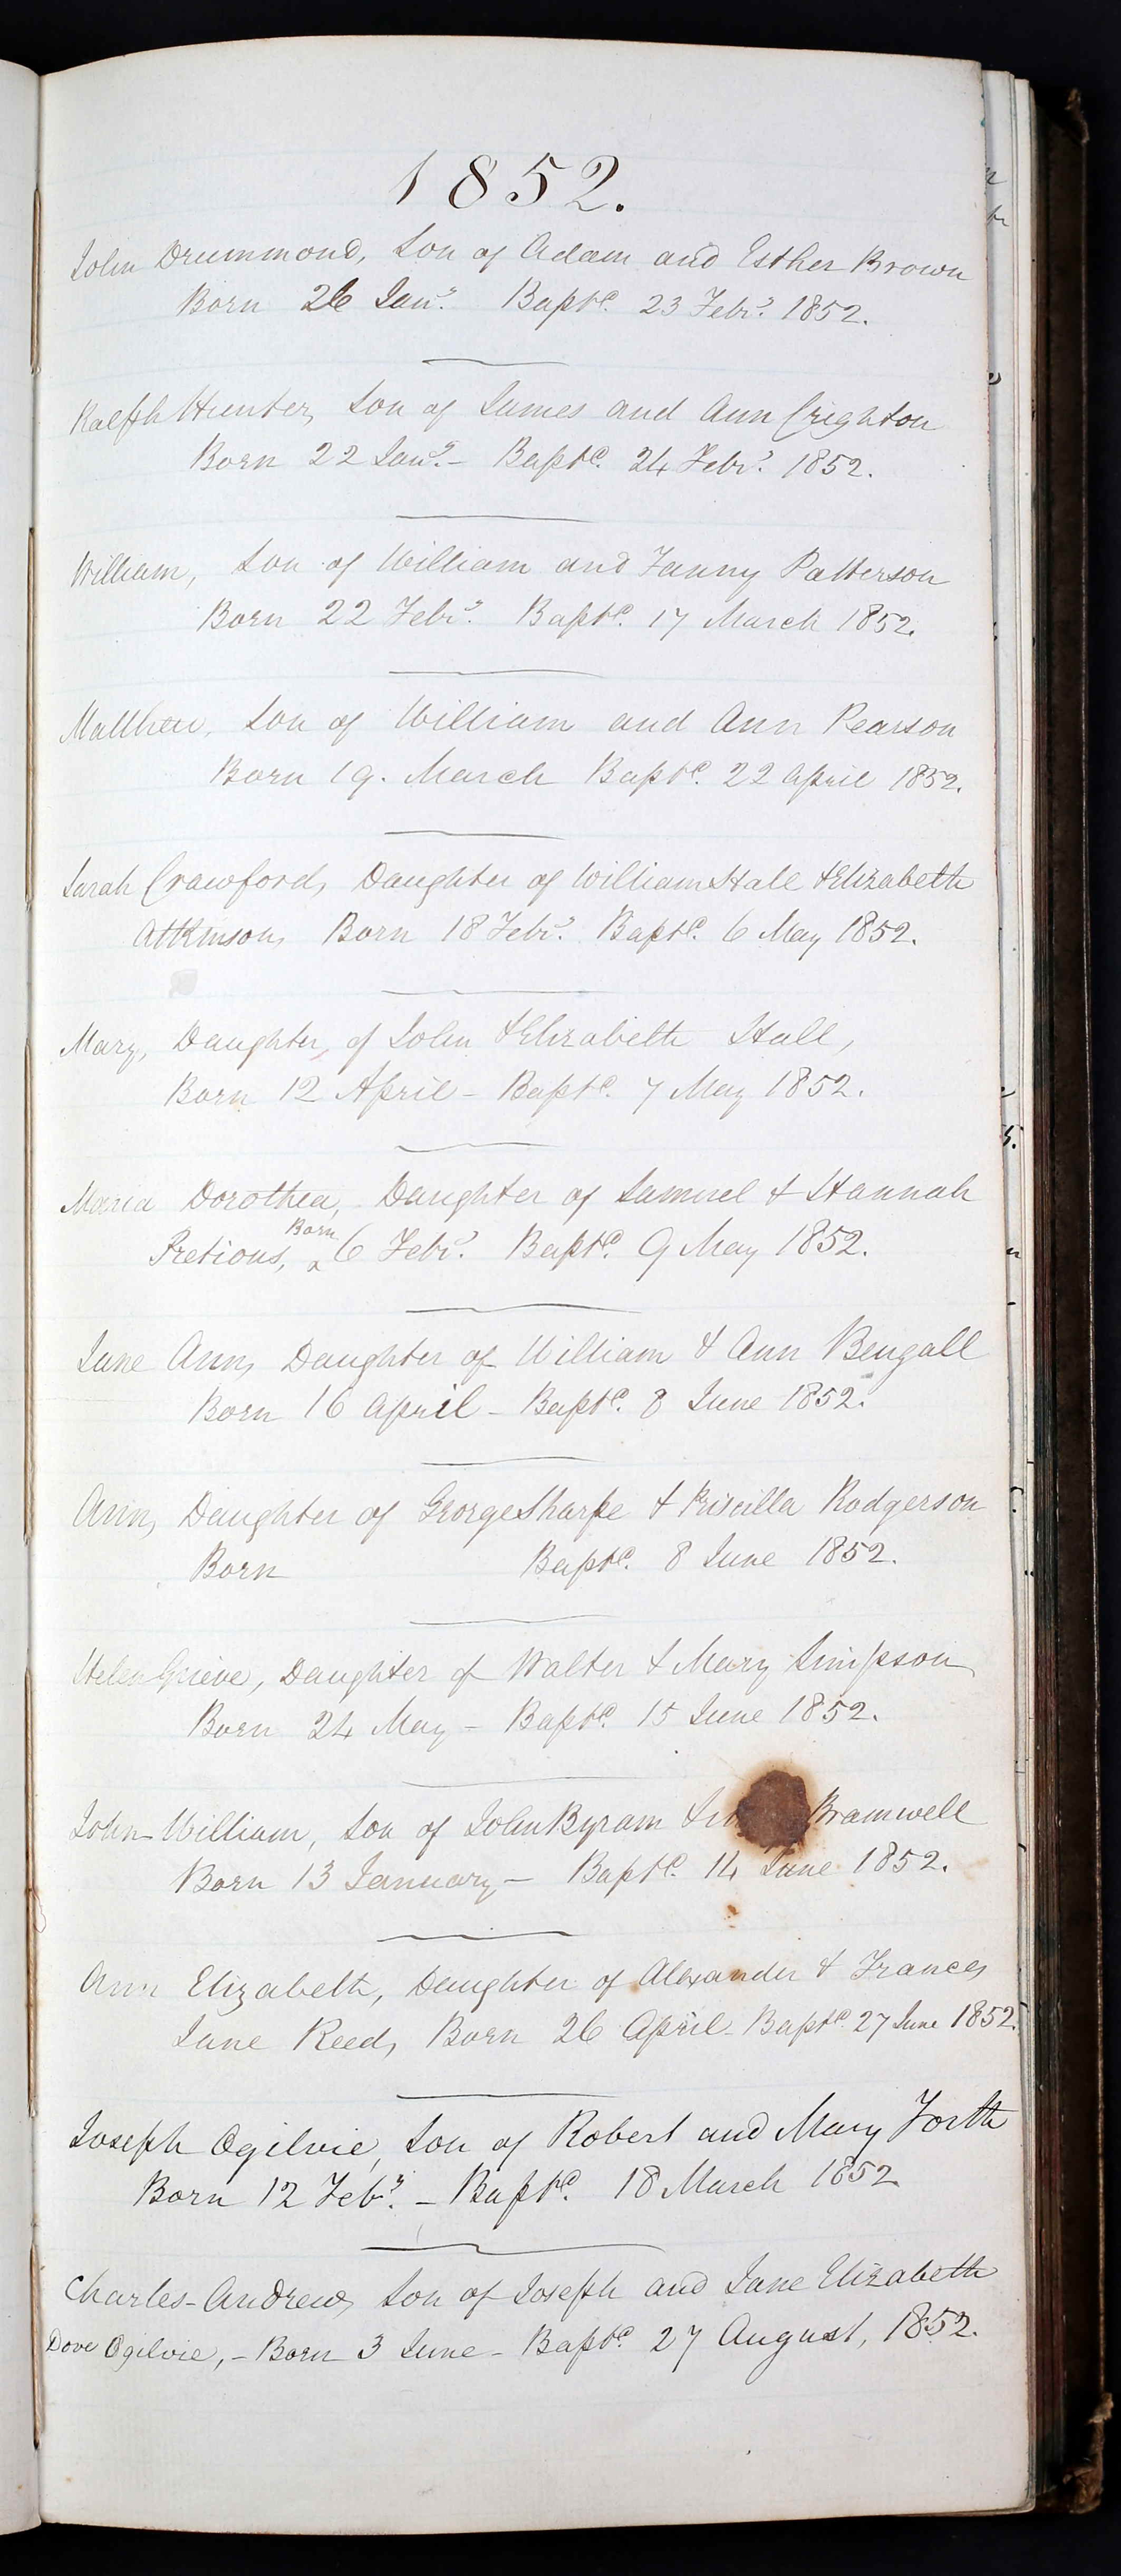 1852.
John Drummond, Son of Adam and Esther Brown
Born 26 Jany. Baptd. 23 Febry. 1852.
Ralph Hunter, Son of James and Ann Crighton
Born 22 Jany. - Baptd. 24 Febry. 1852.
William, Son of William and Fanny Patterson
Born 22 Febry. Baptd. 17 March 1852.
Matthew, Son of William and Ann Pearson
Born 19. March Baptd. 22 April 1852.
Sarah Crawford, Daughter of William Hall & Elizabeth
Atkinson, Born 18 Febry. Baptd. 6 May 1852.
Mary, Daughter, of John & Elizabeth Hall,
Born 12 April - Baptd. 7 May 1852.
Maria Dorothea, Daughter of Samuel & Hannah
Pretious, Born 6 Febry. Baptd. 9 May 1852.
Jane Ann, Daughter of William & Ann Bengall
Born 16 April - Baptd. 8 June 1852.
Ann, Daughter of George Sharpe & Priscilla Rodgerson
Born Baptd. 8 June 1852.
Helen Grieve, Daughter of Walter & Mary Simpson
Born 24 May - Baptd. 15 June 1852.
John William, Son of John Byram & Bramwell
Born 13 January - Baptd. 14 June 1852.
Ann Elizabeth, Daughter of Alexander & Frances
Jane Reed, Born 26 April - Baptd. 27 June 1852.
Joseph Ogilvie, Son of Robert and Mary Forth
Born 12 Feby. - Baptd. 18 March 1852
Charles-Andrew, Son of Joseph and Jane Elizabeth
Dove Ogilvie, - Born 3 June - Baptd. 27 August, 1852.